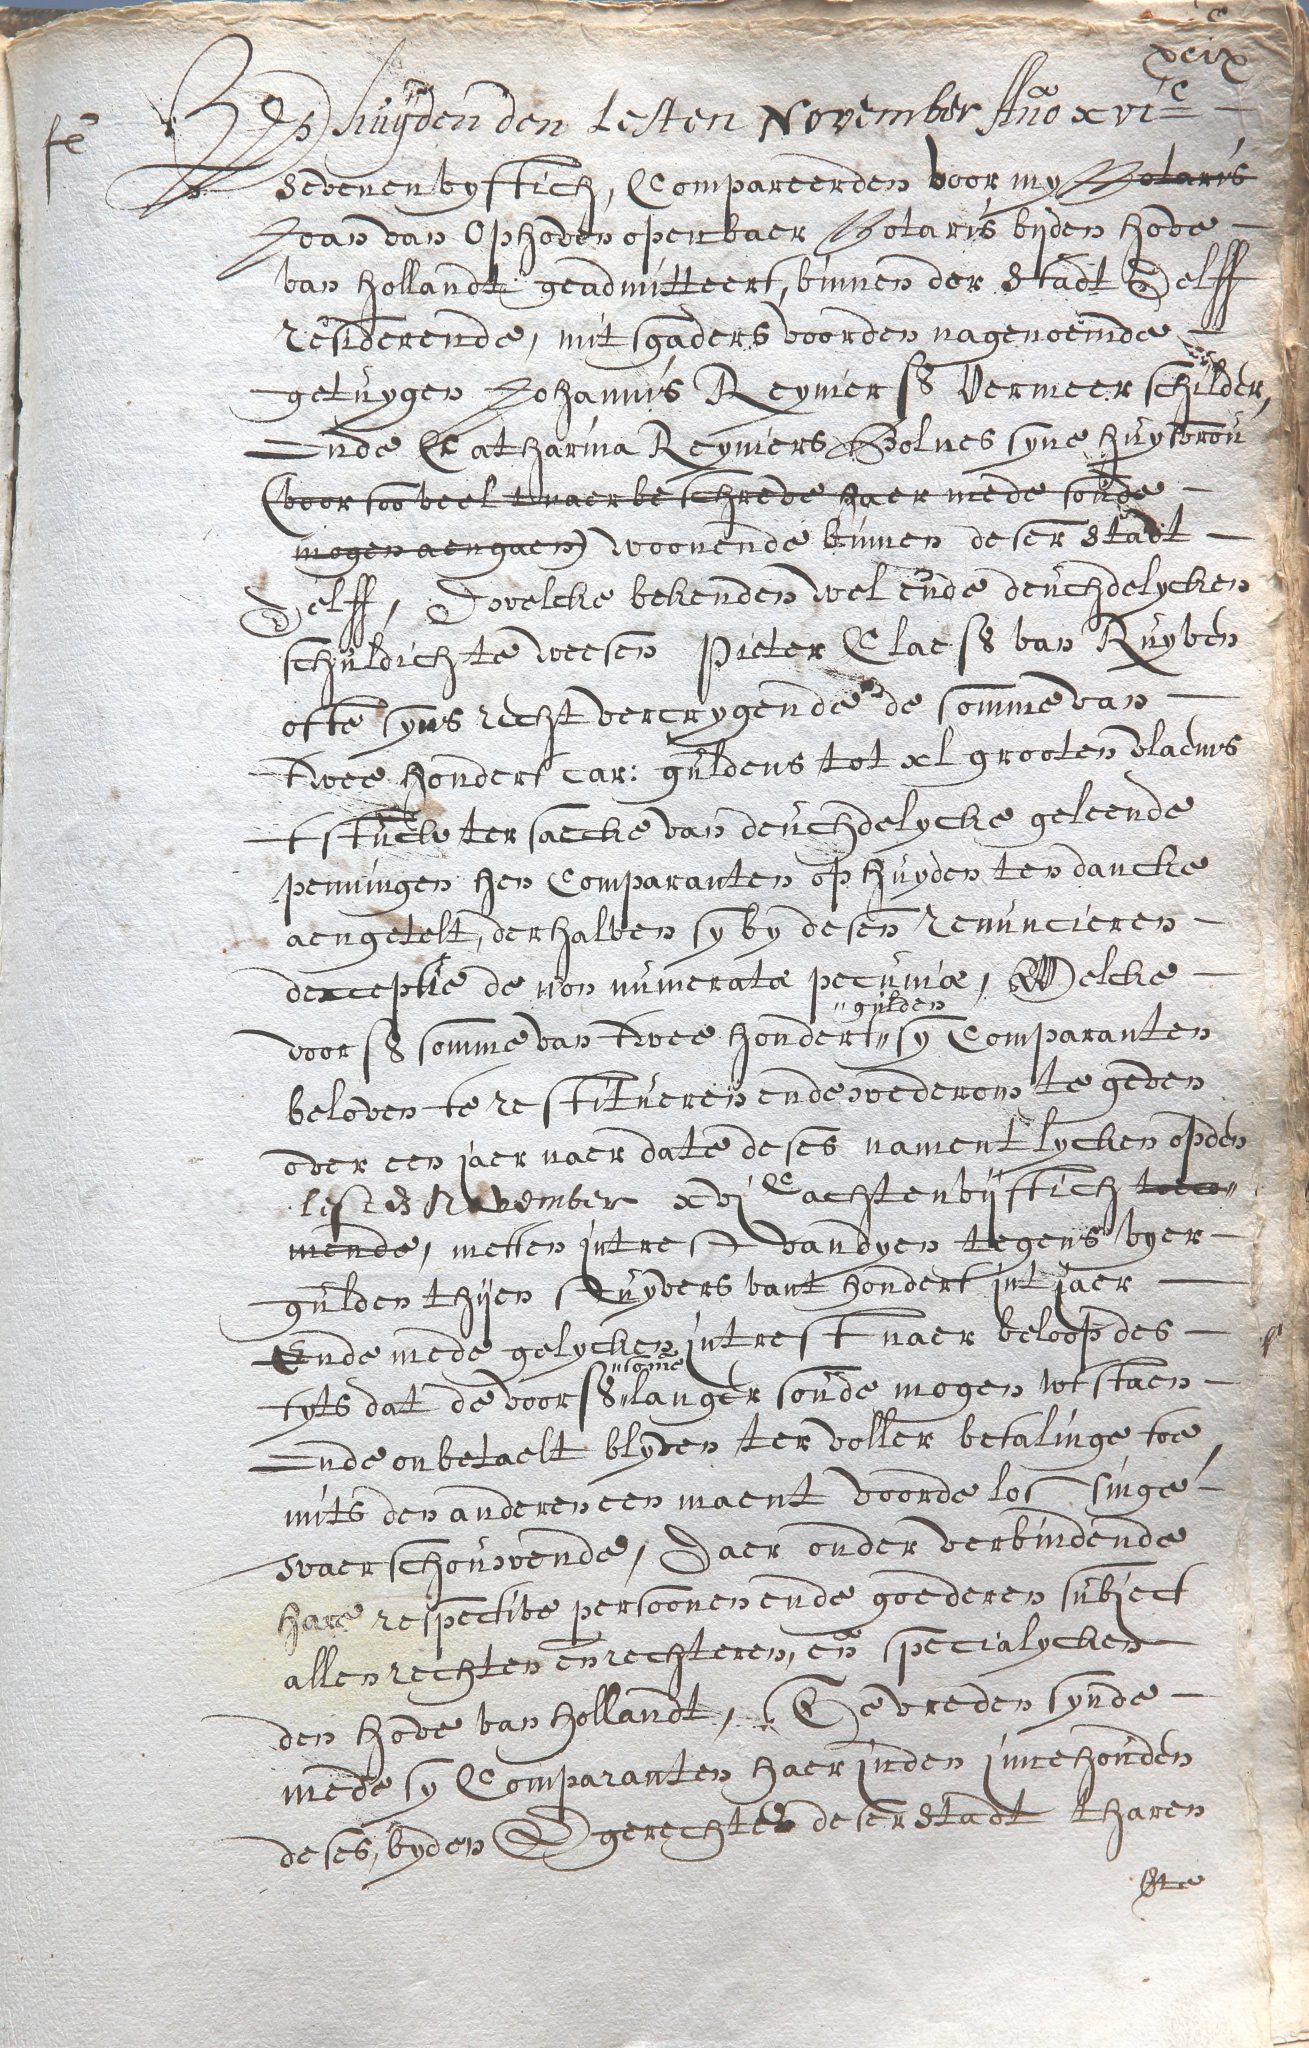 xcix
Op huijden den Lesten November Año xvi c
sevenenvyftich, Compareerden voor my Notaris
Joan van Ophoven openbaer Notaris bijden hove
van Hollandt geadmitteert, binnen der Stadt Delff
residerende, mitsgaders voorden nagenoemde
getuygen Johannis Reyniersz Vermeer schilder,
Ende Catharina Reyniers Bolnes syne huysvrou
(voor soo veel tnaerbeschreve haer mede soude
mogen aengaen) woonende binnen deser Stadt
Delff, Dwelcke bekenden wel ende deuchdelycken
schuldich te weesen Pieter Claesz van Ruyven
ofte syns recht vercrygende de somme van
twee hondert car: guldens tot xl grooten vlaems
tstuck ter saecke van deuchdelycke geleende
penningen hen Comparanten op huyden ten dancke
aengetelt, derhalven sy by desen renuncieren
dexceptie de non numerata pecuniæ, Welcke
gulden
voorsz somme van twee hondert sy Comparanten
beloven te restitueren ende wederom te geven
over een jaer naer date deses namentlycken opden
lesten November xvj c achtenvijftich toeco
mende, metten intrest vandyen tegens vyer
gulden thijen stuyvers vant hondert int jaer
Ende mede gelycken intrest naer beloop des
some
tyts dat de voorsz langer soude mogen wtstaen
Ende onbetaelt blyven ter voller betalinge toe,
mits den anderen een maent voorde lossinge
waerschouwende, Daer onder verbindende
hare respective persoonen ende goederen subject
allen rechten en rechteren, eñ specialycken
den hove van Hollandt, Tevreden synde
mede sy Comparanten haer inden innehouden
deses, byden gerechte deser Stadt tharen